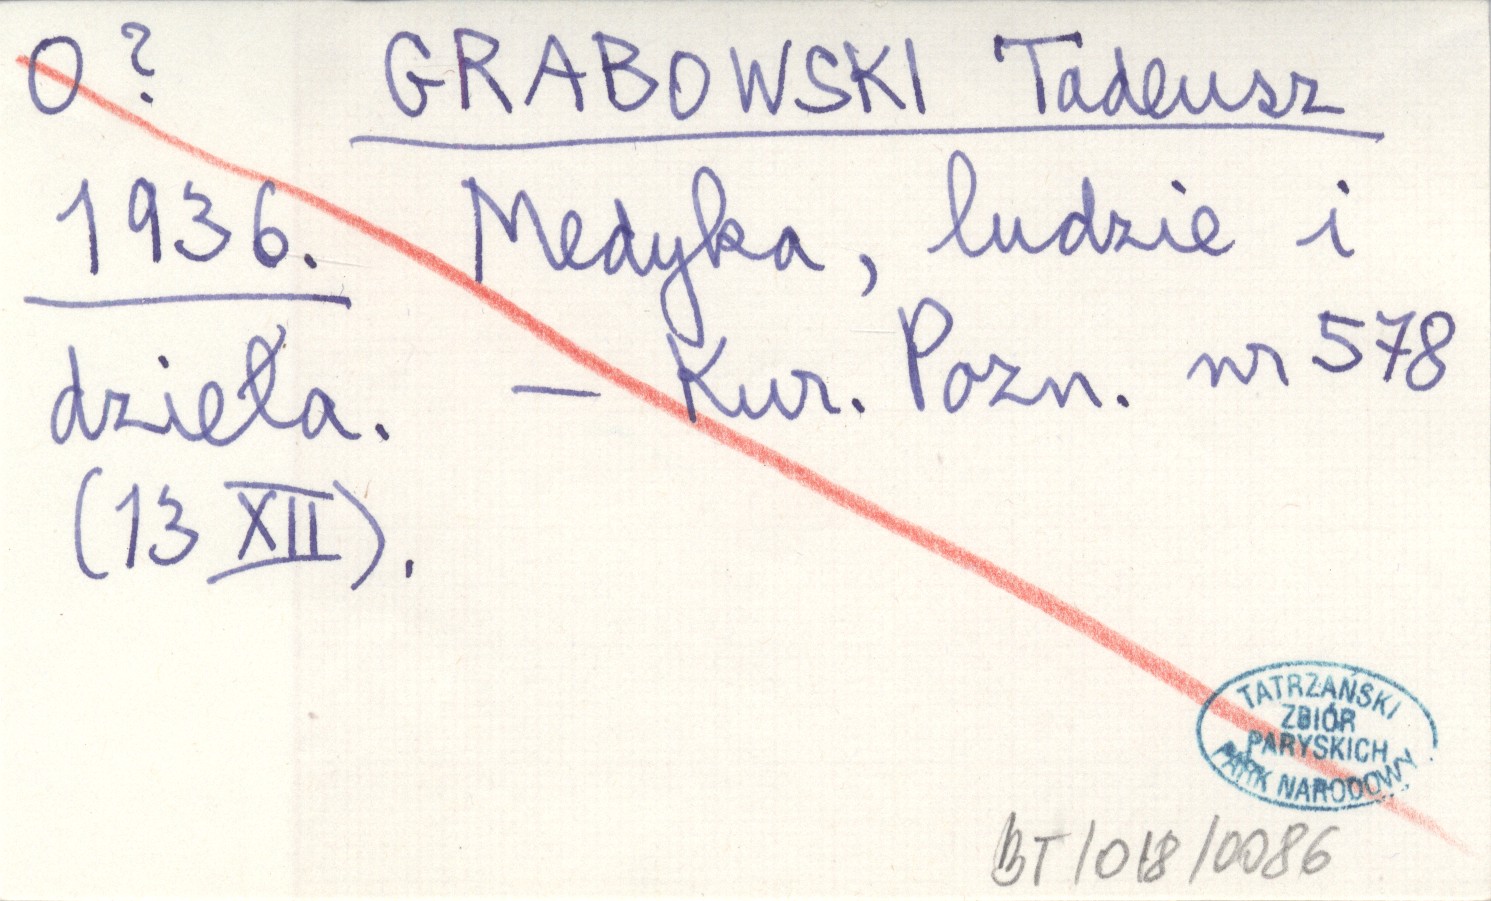 O? GRABOWSKI Tadeusz
1936. Medyka, ludzie i
dzieła. — Kur. Pozn. nr 578
(13 XII).
TATRZAŃSKI
ZBIÓR
PARYSKICH
PARK NARODOWY
BT/018/0086